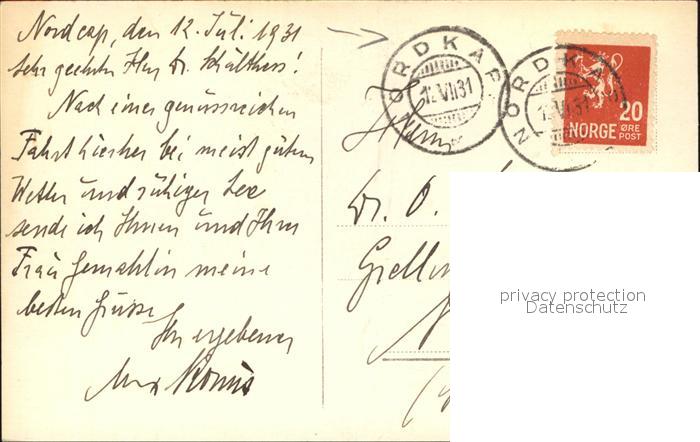 Nordcap, den 12. Juli 1931
Sehr geehrter Herr Dr. Schulthess!
Nach einer genussreichen
Fahrt hierher bei meist gutem
Wetter und ruhiger See
sende ich Ihnen und Ihrer
Frau Gemahlin meine
besten Grüsse
Ihr ergebener
Max
NORDKAP
12.VII.31
NORDKAP
12.VII.31
20
NORGE ØRE
POST
Herrn
Dr. O.
privacy protection
Datenschutz